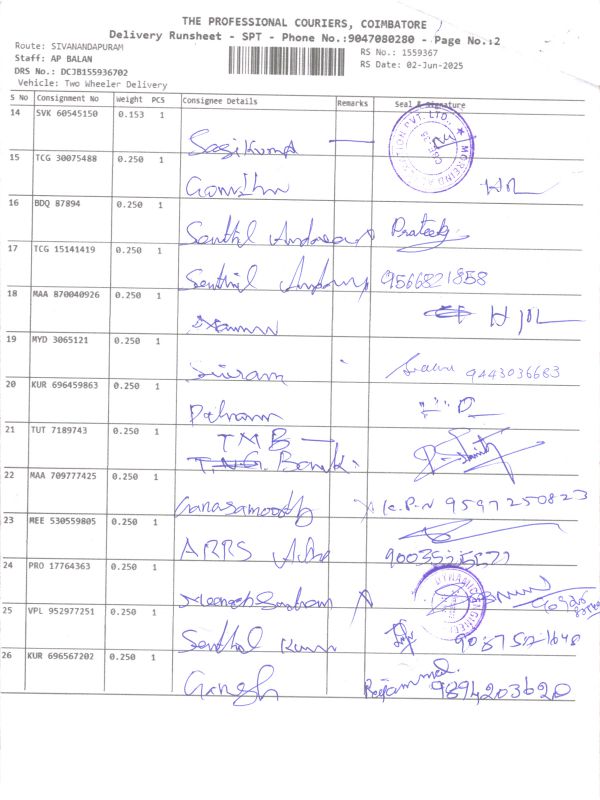 THE PROFESSIONAL COURIERS, COIMBATORE
Delivery Runsheet - SPT - Phone No.:9047080280 - Page No.:2
Route: SIVANANDAPURAM
RS No.: 1559367
Staff: AP BALAN
RS Date: 02-Jun-2025
DRS No.: DCJB155936702
Vehicle: Two Wheeler Delivery
S No Consignment No Weight PCS Consignee Details Remarks Seal & Signature
14 SVK 60545150 0.153 1
SasiKumar
15 TCG 30075488 0.250 1
16 BDQ 87894 0.250 1
Senthil Prateek
17 TCG 15141419 0.250 1
Senthil 9566821858
18 MAA 870040926 0.250 1
19 MYD 3065121 0.250 1
Sriram 9443036683
20 KUR 696459863 0.250 1
21 TUT 7189743 0.250 1
TMB
Bank
22 MAA 709777425 0.250 1
Ganasamoorthy K.P.N 9597250823
23 MEE 530559805 0.250 1
ARRS
24 PRO 17764363 0.250 1
25 VPL 952977251 0.250 1
Senthil Kumar
26 KUR 696567202 0.250 1
Ganesh 9894203620